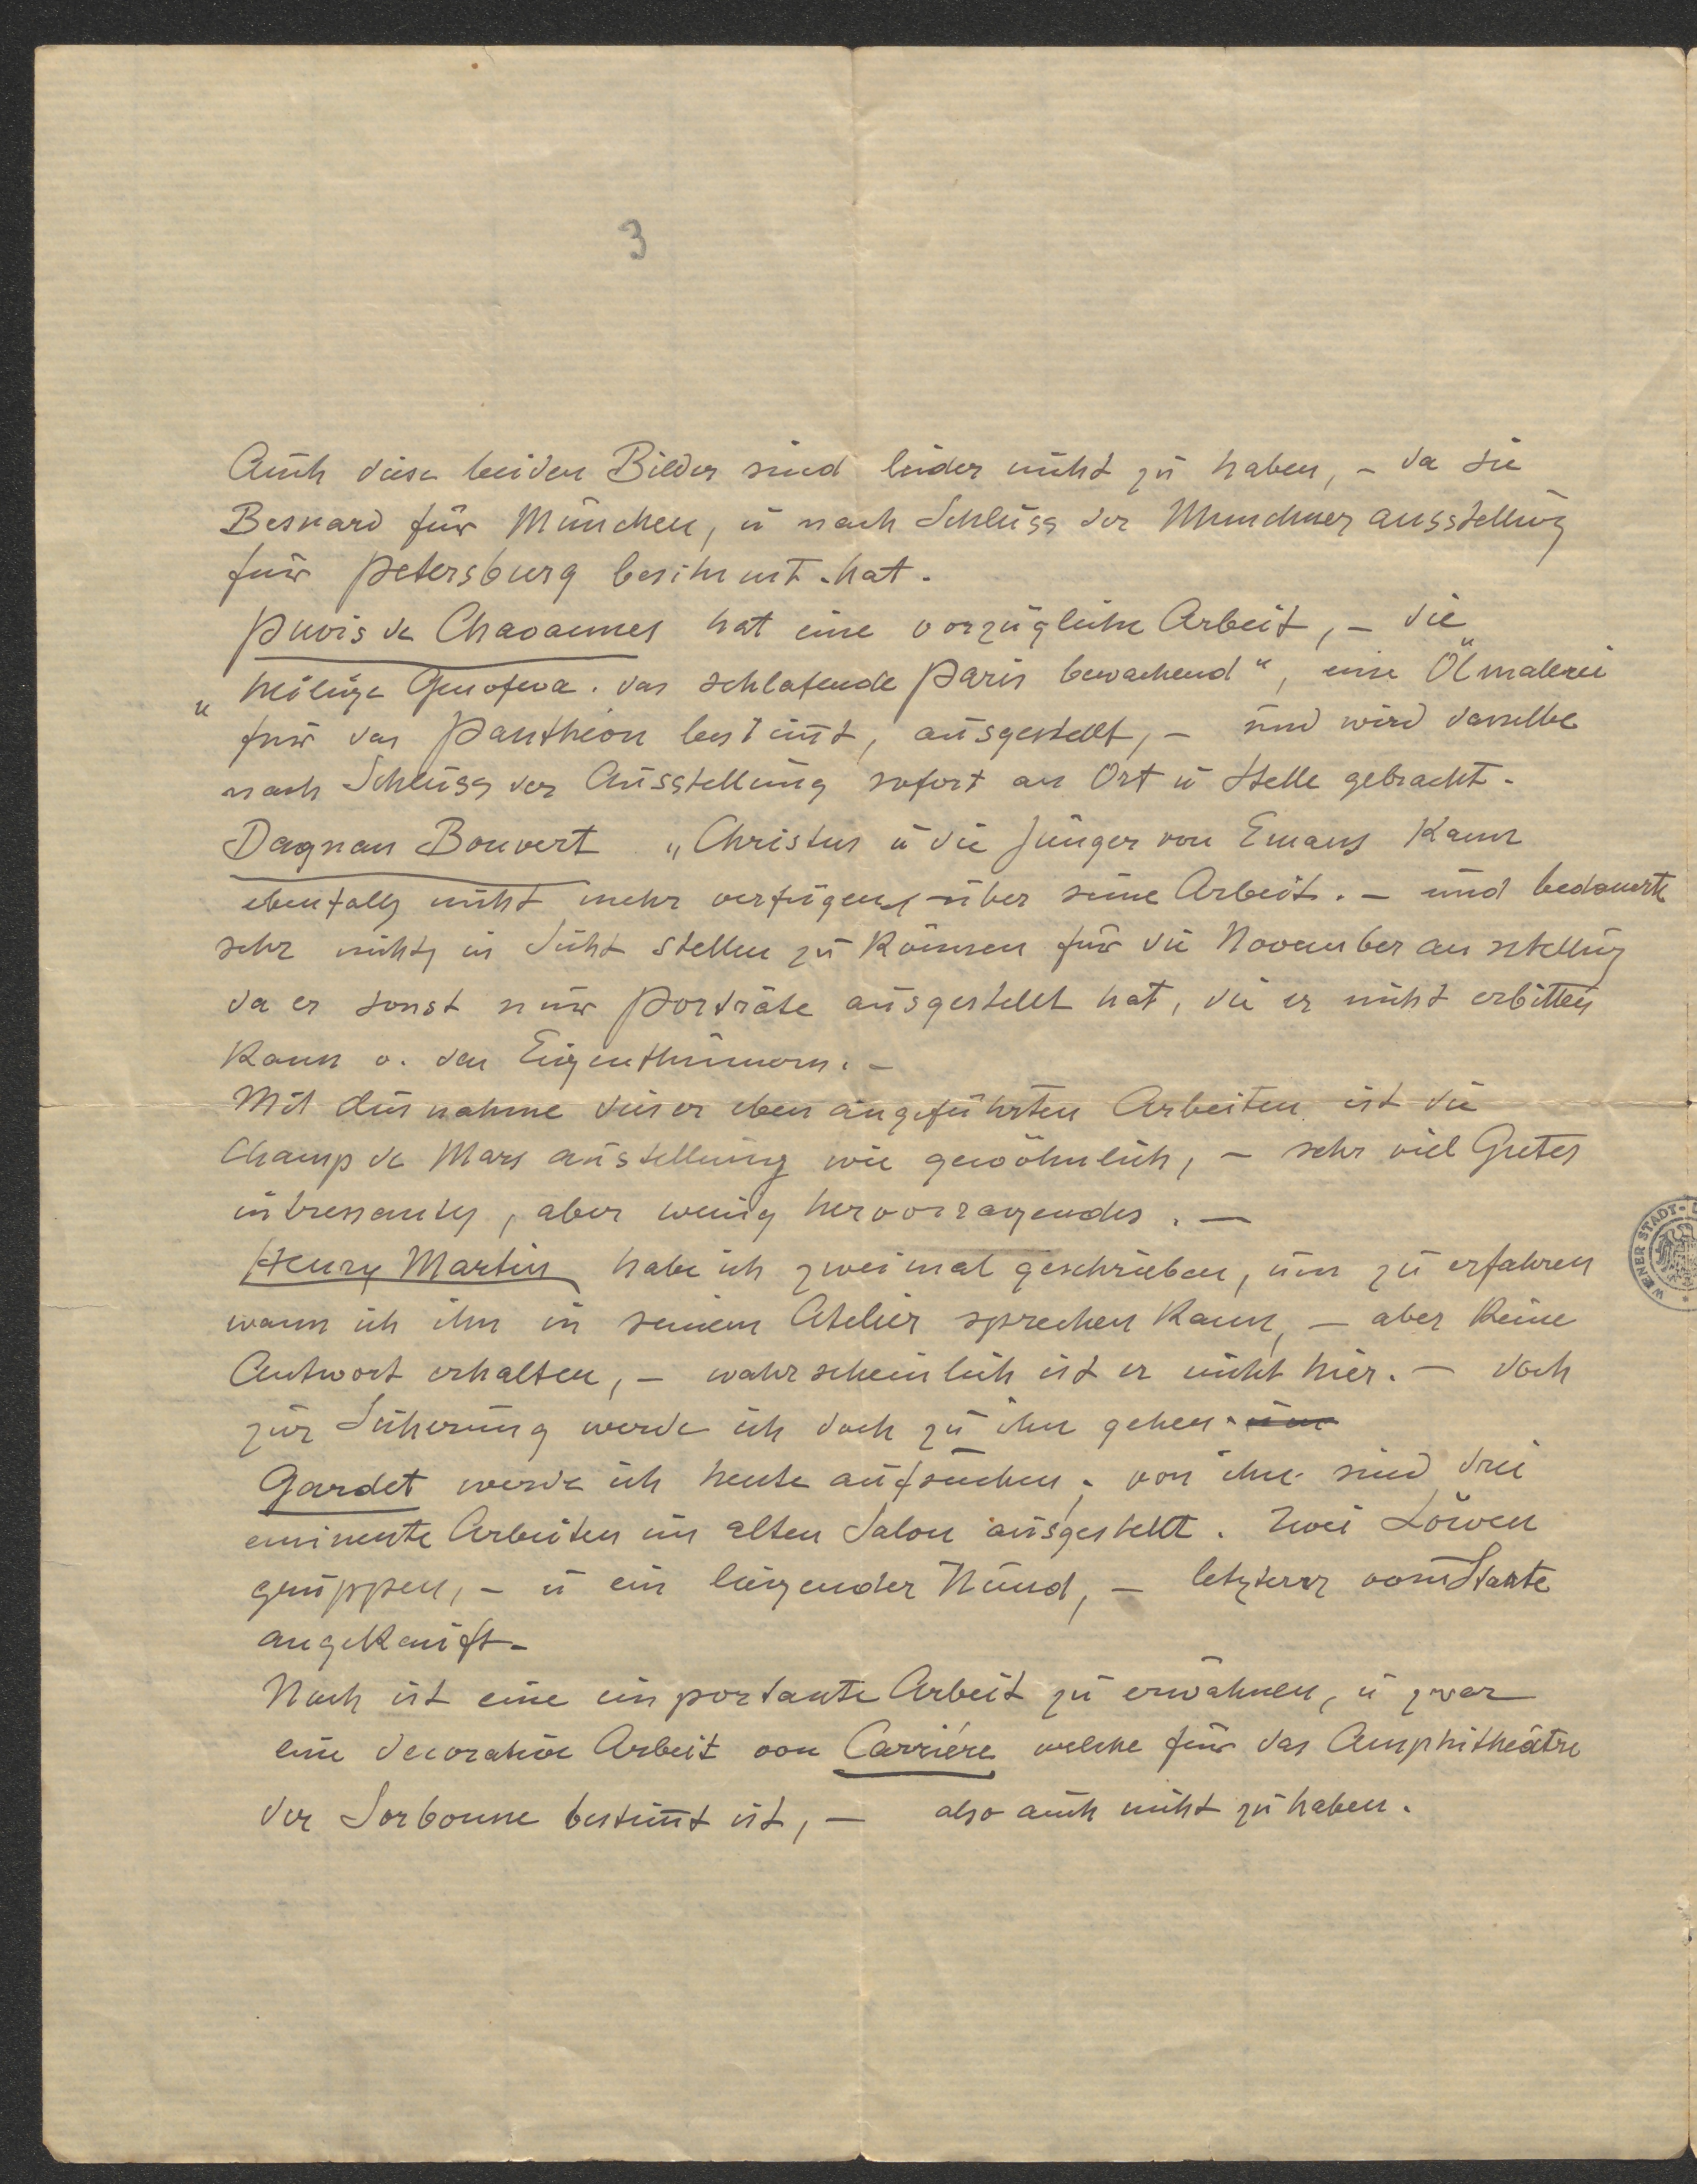 3
Auch diese beiden Bilder sind leider nicht zu haben, – da sie
Besnard für München, u nach Schluss der Munchner ausstellung
für Petersburg bestimmt hat.
Puvis de Chavannes hat eine vorzügliche Arbeit, – die
„heilige Genofeva. das schlafende Paris bewachend“, eine Ölmalerei
für das Pantheon bestim̄t, ausgestellt, – und wird dasselbe
nach Schluss der Ausstellung sofort an Ort u Stelle gebracht.
Dagnan Bouvert „Christus u die Jünger von Emaus kann
ebenfalls nicht mehr verfügen über seine Arbeit. – und bedauerte
sehr nichts in Sicht stellen zu können für die November ausstellung
da er sonst nur Porträte ausgestellt hat, die er nicht erbitten
kann v. den Eigenthümern. –
Mit Ausnahme dieser eben angeführten Arbeiten ist die
Champ de Mars austellung wie gewöhnlich, – sehr viel Gutes
intressantes, aber wenig hervorragendes. –
Henry Martin habe ich zweimal geschrieben, um zu erfahren
wann ich ihn in seinem Atelier sprechen kann, – aber keine
Antwort erhalten, – wahrscheinlich ist er nicht hier. – doch
zur Sicherung werde ich doch zu ihm gehen. um
Gardet werde ich heute aufsuchen; von ihm sind drei
eminente Arbeiten im alten Salon ausgestellt. Zwei Löwen
gruppen, – u ein liegender Hund, – letzterer vom Staate
angekauft –
Noch ist eine importante Arbeit zu erwähnen, u zwar
eine decorative Arbeit von Carriére welche für das Amphitheâtre
der Sorbonne bestim̄t ist, – also auch nicht zu haben.
WIENER STADT-